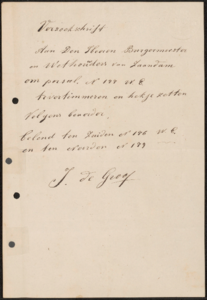 Verzoekschrift
Aan Den Heeren Burgemeester
en Wethouders van Zaandam
om perceel N 188 W. E
te vertimmeren en
Volgens
Belend ten Zuiden N 186 W. E
en ten Noorden N 189
J. de Groof